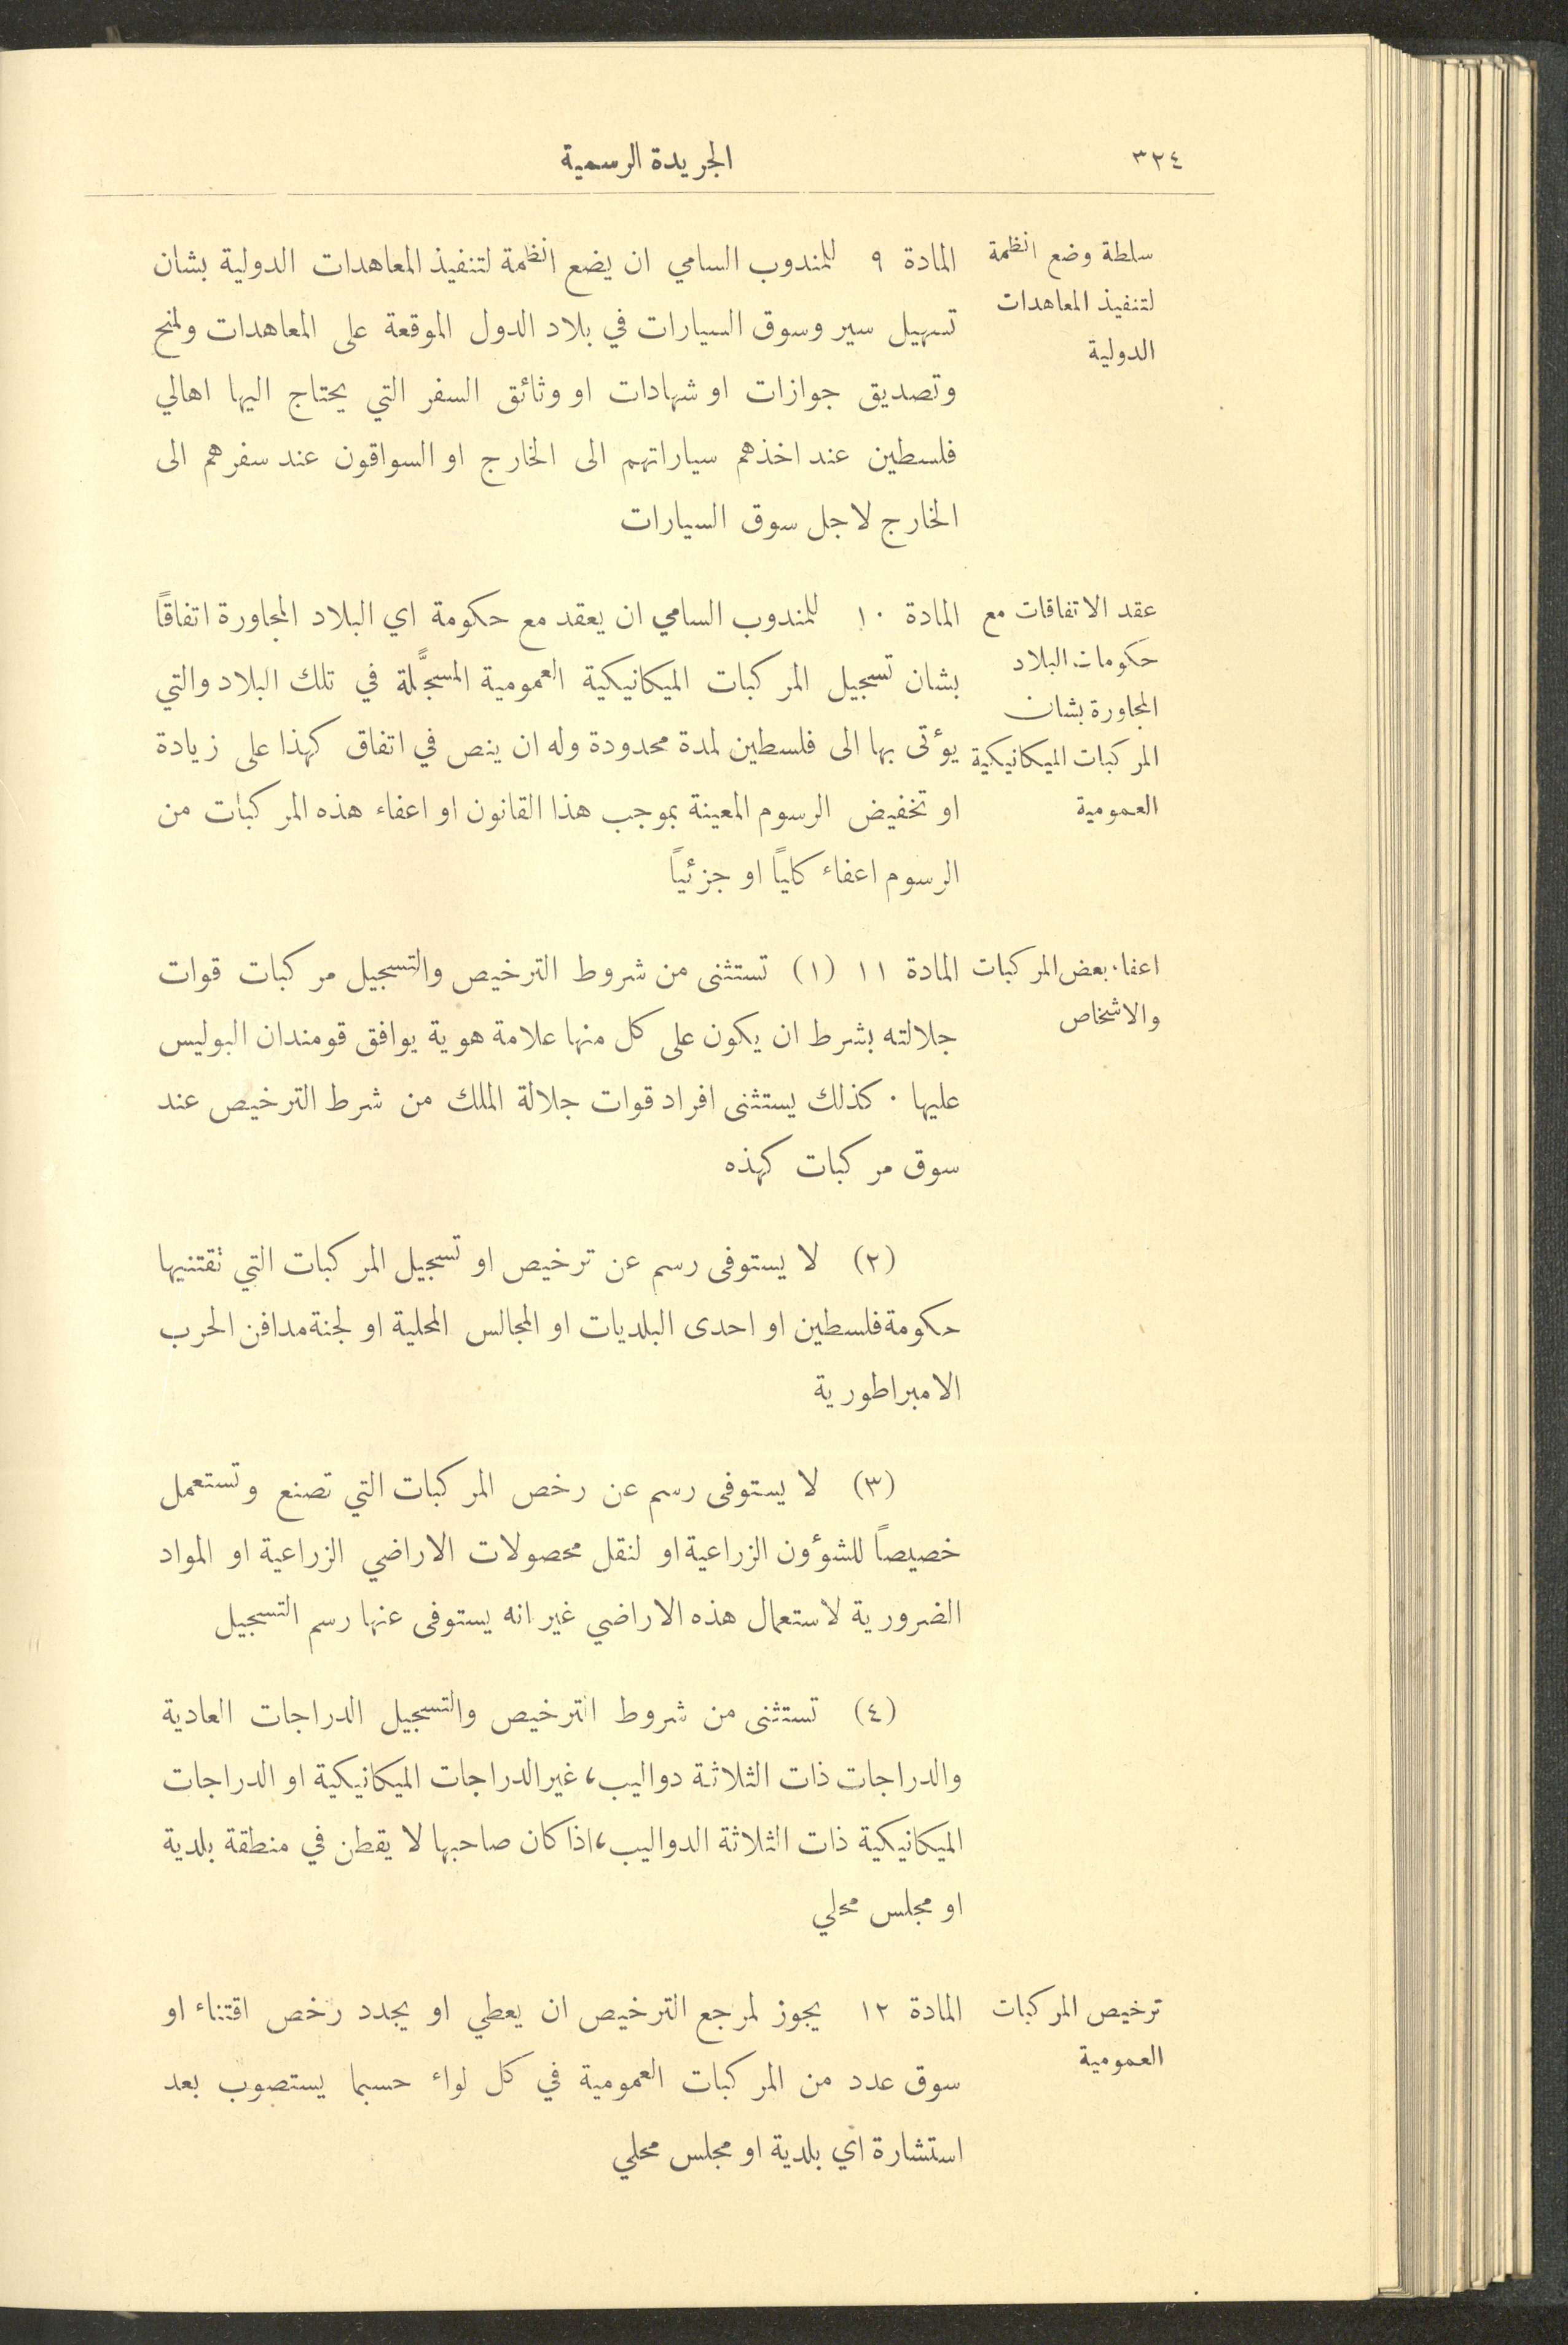 ٣٢٤
الجريدة الرسمية
سلطة وضع انظمة
لتنفيذ المعاهدات
الدولية
المادة ٩ للمندوب السامي ان يضع انظمة لتنفيذ المعاهدات الدولية بشان
تسهيل سير وسوق السيارات في بلاد الدول الموقعة على المعاهدات ولمنح
وتصديق جوازات او شهادات او وثائق السفر التي يحتاج اليها اهالي
فلسطين عند اخذهم سياراتهم الى الخارج او السواقون عند سفرهم الى
الخارج لاجل سوق السيارات
عقد الاتفاقات مع
حكومات البلاد
المجاورة بشان
المركبات الميكانيكية
العمومية
المادة ١٠ للمندوب السامي ان يعقد مع حكومة اي البلاد المجاورة اتفاقاً
بشان تسجيل المركبات الميكانيكية العمومية المسجَّلة في تلك البلاد والتي
يؤتى بها الى فلسطين لمدة محدودة وله ان ينص في اتفاق كهذا على زيادة
او تخفيض الرسوم المعينة بموجب هذا القانون او اعفاء هذه المركبات من
الرسوم اعفاء كلياً او جزئياً
اعفاء بعض المركبات
والاشخاص
المادة ١١ (١) تستثنى من شروط الترخيص والتسجيل مركبات قوات
جلالته بشرط ان يكون على كل منها علامة هوية يوافق قومندان البوليس
عليها . كذلك يستثنى افراد قوات جلالة الملك من شرط الترخيص عند
سوق مركبات كهذه
(٢) لا يستوفى رسم عن ترخيص او تسجيل المركبات التي تقتنيها
حكومة فلسطين او احدى البلديات او المجالس المحلية او لجنة مدافن الحرب
الامبراطورية
(٣) لا يستوفى رسم عن رخص المركبات التي تصنع وتستعمل
خصيصاً للشؤون الزراعية او لنقل محصولات الاراضي الزراعية او المواد
الضرورية لاستعمال هذه الاراضي غير انه يستوفى عنها رسم التسجيل
(٤) تستثنى من شروط الترخيص والتسجيل الدراجات العادية
والدراجات ذات الثلاثة دواليب، غير الدراجات الميكانيكية او الدراجات
الميكانيكية ذات الثلاثة الدواليب، اذا كان صاحبها لا يقطن في منطقة بلدية
او مجلس محلي
ترخيص المركبات
العمومية
المادة ١٢ يجوز لمرجع الترخيص ان يعطي او يجدد رخص اقتناء او
سوق عدد من المركبات العمومية في كل لواء حسبما يستصوب بعد
استشارة اي بلدية او مجلس محلي